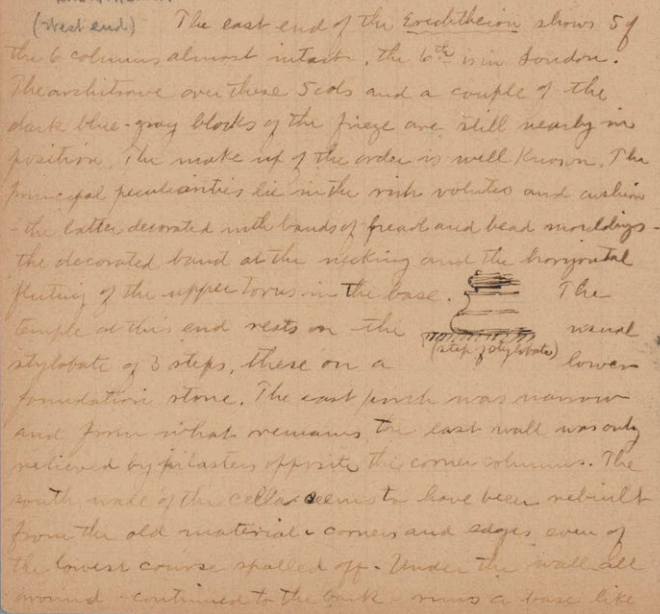 (West end) The east end of the Erechtheion shows 5 of
the 6 columns almost intact, the 6th is in London.
The architrave over these 5 cols and a couple of the
dark blue-gray blocks of the frieze are still nearly in
position. The make up of the order is well known. The
principal peculiarities lie in the rich volutes and cushion
- the latter decorated with bands of bead and mouldings -
the decorated band at the necking and the horizontal
fluting of the upper torus in the base. The
temple at this end rests on the usual
(step of stylobate)
stylobate of 3 steps, these on a lower
foundation stone. The east porch was narrow
and from what remains the east wall was only
relieved by pilasters opposite the corner columns. The
south wall of the cella seems to have been rebuilt
from the old material - corners and edges even of
the lowest course spalled off - Under the wall all
around - continued to the back - runs a base like